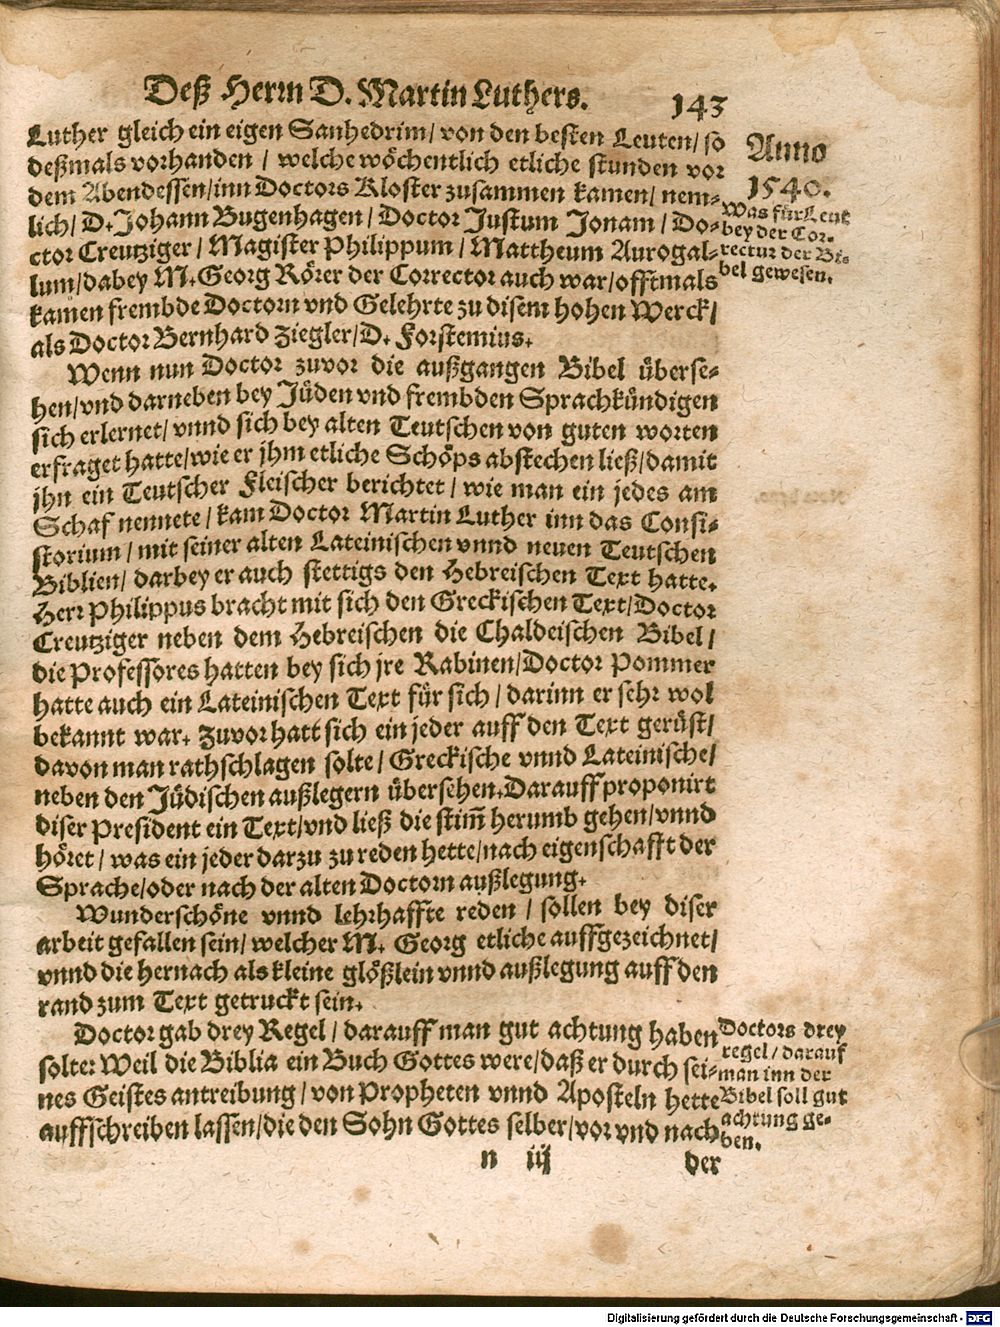 Deß Herrn D. Martin Luthers.
143
Luther gleich ein eigen Sanhedrim/ von den besten Leuten/ so
deßmals vorhanden / welche wöchentlich etliche stunden vor
dem Abendessen/inn Doctors Kloster zusammen kamen/ nem-
lich/ D. Johann Bugenhagen / Doctor Justum Jonam / Do-
ctor Creutziger / Magister Philippum / Mattheum Aurogal-
lum/dabey M. Georg Rörer der Corrector auch war/offtmals
kamen frembde Doctorn vnd Gelehrte zu disem hohen Werck/
als Doctor Bernhard Ziegler/D. Forstemius.
Anno
1540.
Was für Leut
bey der Cor-
rectur der Bi-
bel gewesen.
Wenn nun Doctor zuvor die außgangen Bibel überse-
hen/vnd darneben bey Jüden vnd frembden Sprachkündigen
sich erlernet/ vnnd sich bey alten Teutschen von guten worten
erfraget hatte/wie er jhm etliche Schöps abstechen ließ/damit
jhn ein Teutscher Fleischer berichtet / wie man ein jedes am
Schaf nennete / kam Doctor Martin Luther inn das Consi-
storium / mit seiner alten Lateinischen vnnd neuen Teutschen
Biblien/ darbey er auch stettigs den Hebreischen Text hatte.
Herr Philippus bracht mit sich den Greckischen Text/Doctor
Creutziger neben dem Hebreischen die Chaldeischen Bibel/
die Professores hatten bey sich jre Rabinen/Doctor Pommer
hatte auch ein Lateinischen Text für sich / darinn er sehr wol
bekannt war. Zuvor hatt sich ein jeder auff den Text gerüst/
davon man rathschlagen solte / Greckische vnnd Lateinische/
neben den Jüdischen außlegern übersehen. Darauff proponirt
diser President ein Text/vnd ließ die stim̃ herumb gehen/vnnd
höret / was ein jeder darzu zu reden hette/nach eigenschafft der
Sprache/oder nach der alten Doctorn außlegung.
Wunderschöne vnnd lehrhaffte reden / sollen bey diser
arbeit gefallen sein/ welcher M. Georg etliche auffgezeichnet/
vnnd die hernach als kleine glößlein vnnd außlegung auff den
rand zum Text getruckt sein.
Doctor gab drey Regel / darauff man gut achtung haben
solte: Weil die Biblia ein Buch Gottes were/daß er durch sei-
nes Geistes antreibung / von Propheten vnnd Aposteln hette
auffschreiben lassen/die den Sohn Gottes selber/vor vnd nach
Doctors drey
regel / darauf
man inn der
Bibel soll gut
achtung ge-
ben.
n iij
der
Digitalisierung gefördert durch die Deutsche Forschungsgemeinschaft - DFG